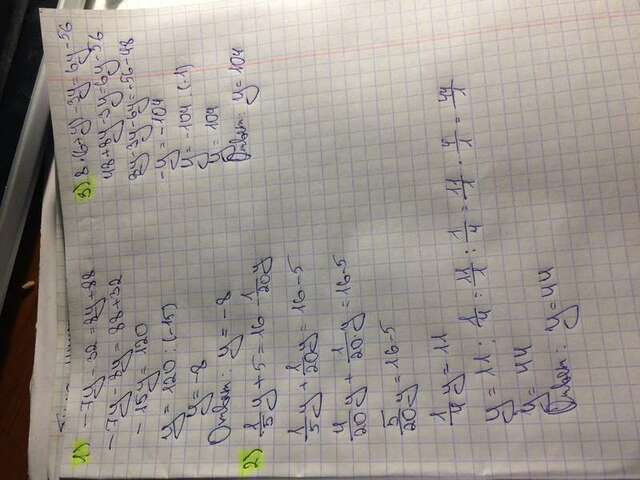 1) -7y-32=8y+88
-7y-8y=88+32
-15y=120
y=120:(-15)
y=-8
Ответ: y=-8
2) 1/5y+5=16 1/20y
1/5y+1/20y=16-5
4/20y+1/20y=16-5
5/20y=16-5
1/4y=11
y=11:1/4=11/1:1/4=11/1·4/1=44/1
y=44
Ответ: y=44
3) 8·(6+y)-3y=6y-56
48+8y-3y=6y-56
8y-3y-6y=-56-48
-y=-104
y=-104:(-1)
y=104
Ответ: y=104